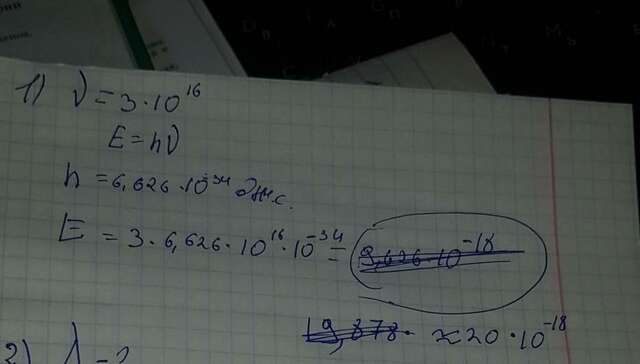 1) ν = 3 · 10¹⁶
E = hν
h = 6,626 · 10⁻³⁴ Дж·с.
E = 3 · 6,626 · 10¹⁶ · 10⁻³⁴ = 9,626 · 10⁻¹⁸
19,878 · ≈ 20 · 10⁻¹⁸
2) λ = ?